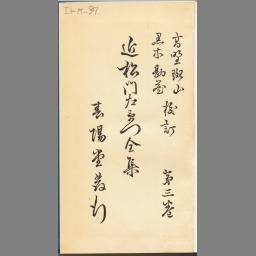 高野辰之
黒木勘蔵
校訂
近松門左衛門全集
第三巻
春陽堂發行